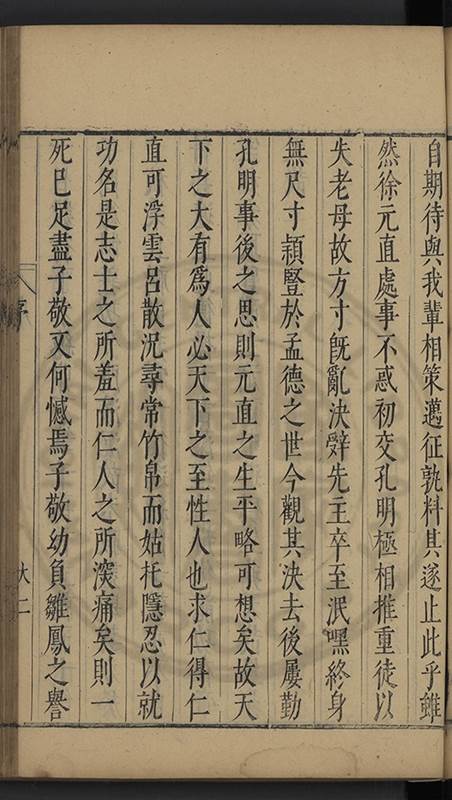 自期待與我輩相策邁征孰料其遂止此乎雖
然徐元直處事不惑初交孔明極相推重徒以
失老母故方寸旣亂決辭先主卒至泯嘿終身
無尺寸頴豎於孟德之世今觀其決去後屢勤
孔明事後之思則元直之生平略可想矣故天
下之大有爲人必天下之至性人也求仁得仁
直可浮雲呂散況尋常竹帛而姑托隱忍以就
功名是志士之所羞而仁人之所深痛矣則一
死已足盡子敬又何憾焉子敬幼負雛鳳之譽
序
二